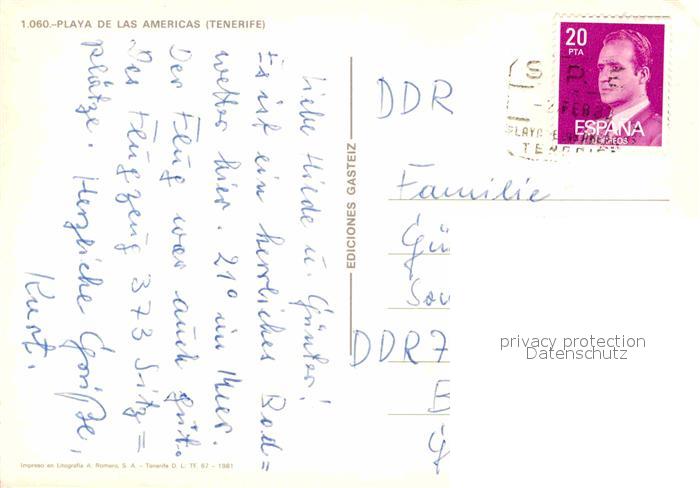 1.060.-PLAYA DE LAS AMERICAS (TENERIFE)
Liebe Hilde u. Günter!
Es ist ein herrliches Bad=
wetter hier. 21° im Meer.
Der Flug war auch gut.
Das Flugzeug 373 Sitz=
plätze. Herzliche Grüße,
Kurt.
EDICIONES GASTEIZ
Impreso en Litografía A. Romero, S. A. - Tenerife D. L. TF. 67 - 1981
20
PTA
ESPAÑA
CORREOS
FEB
PLAYA
DDR
Familie
Gü
DDR 7
privacy protection
Datenschutz